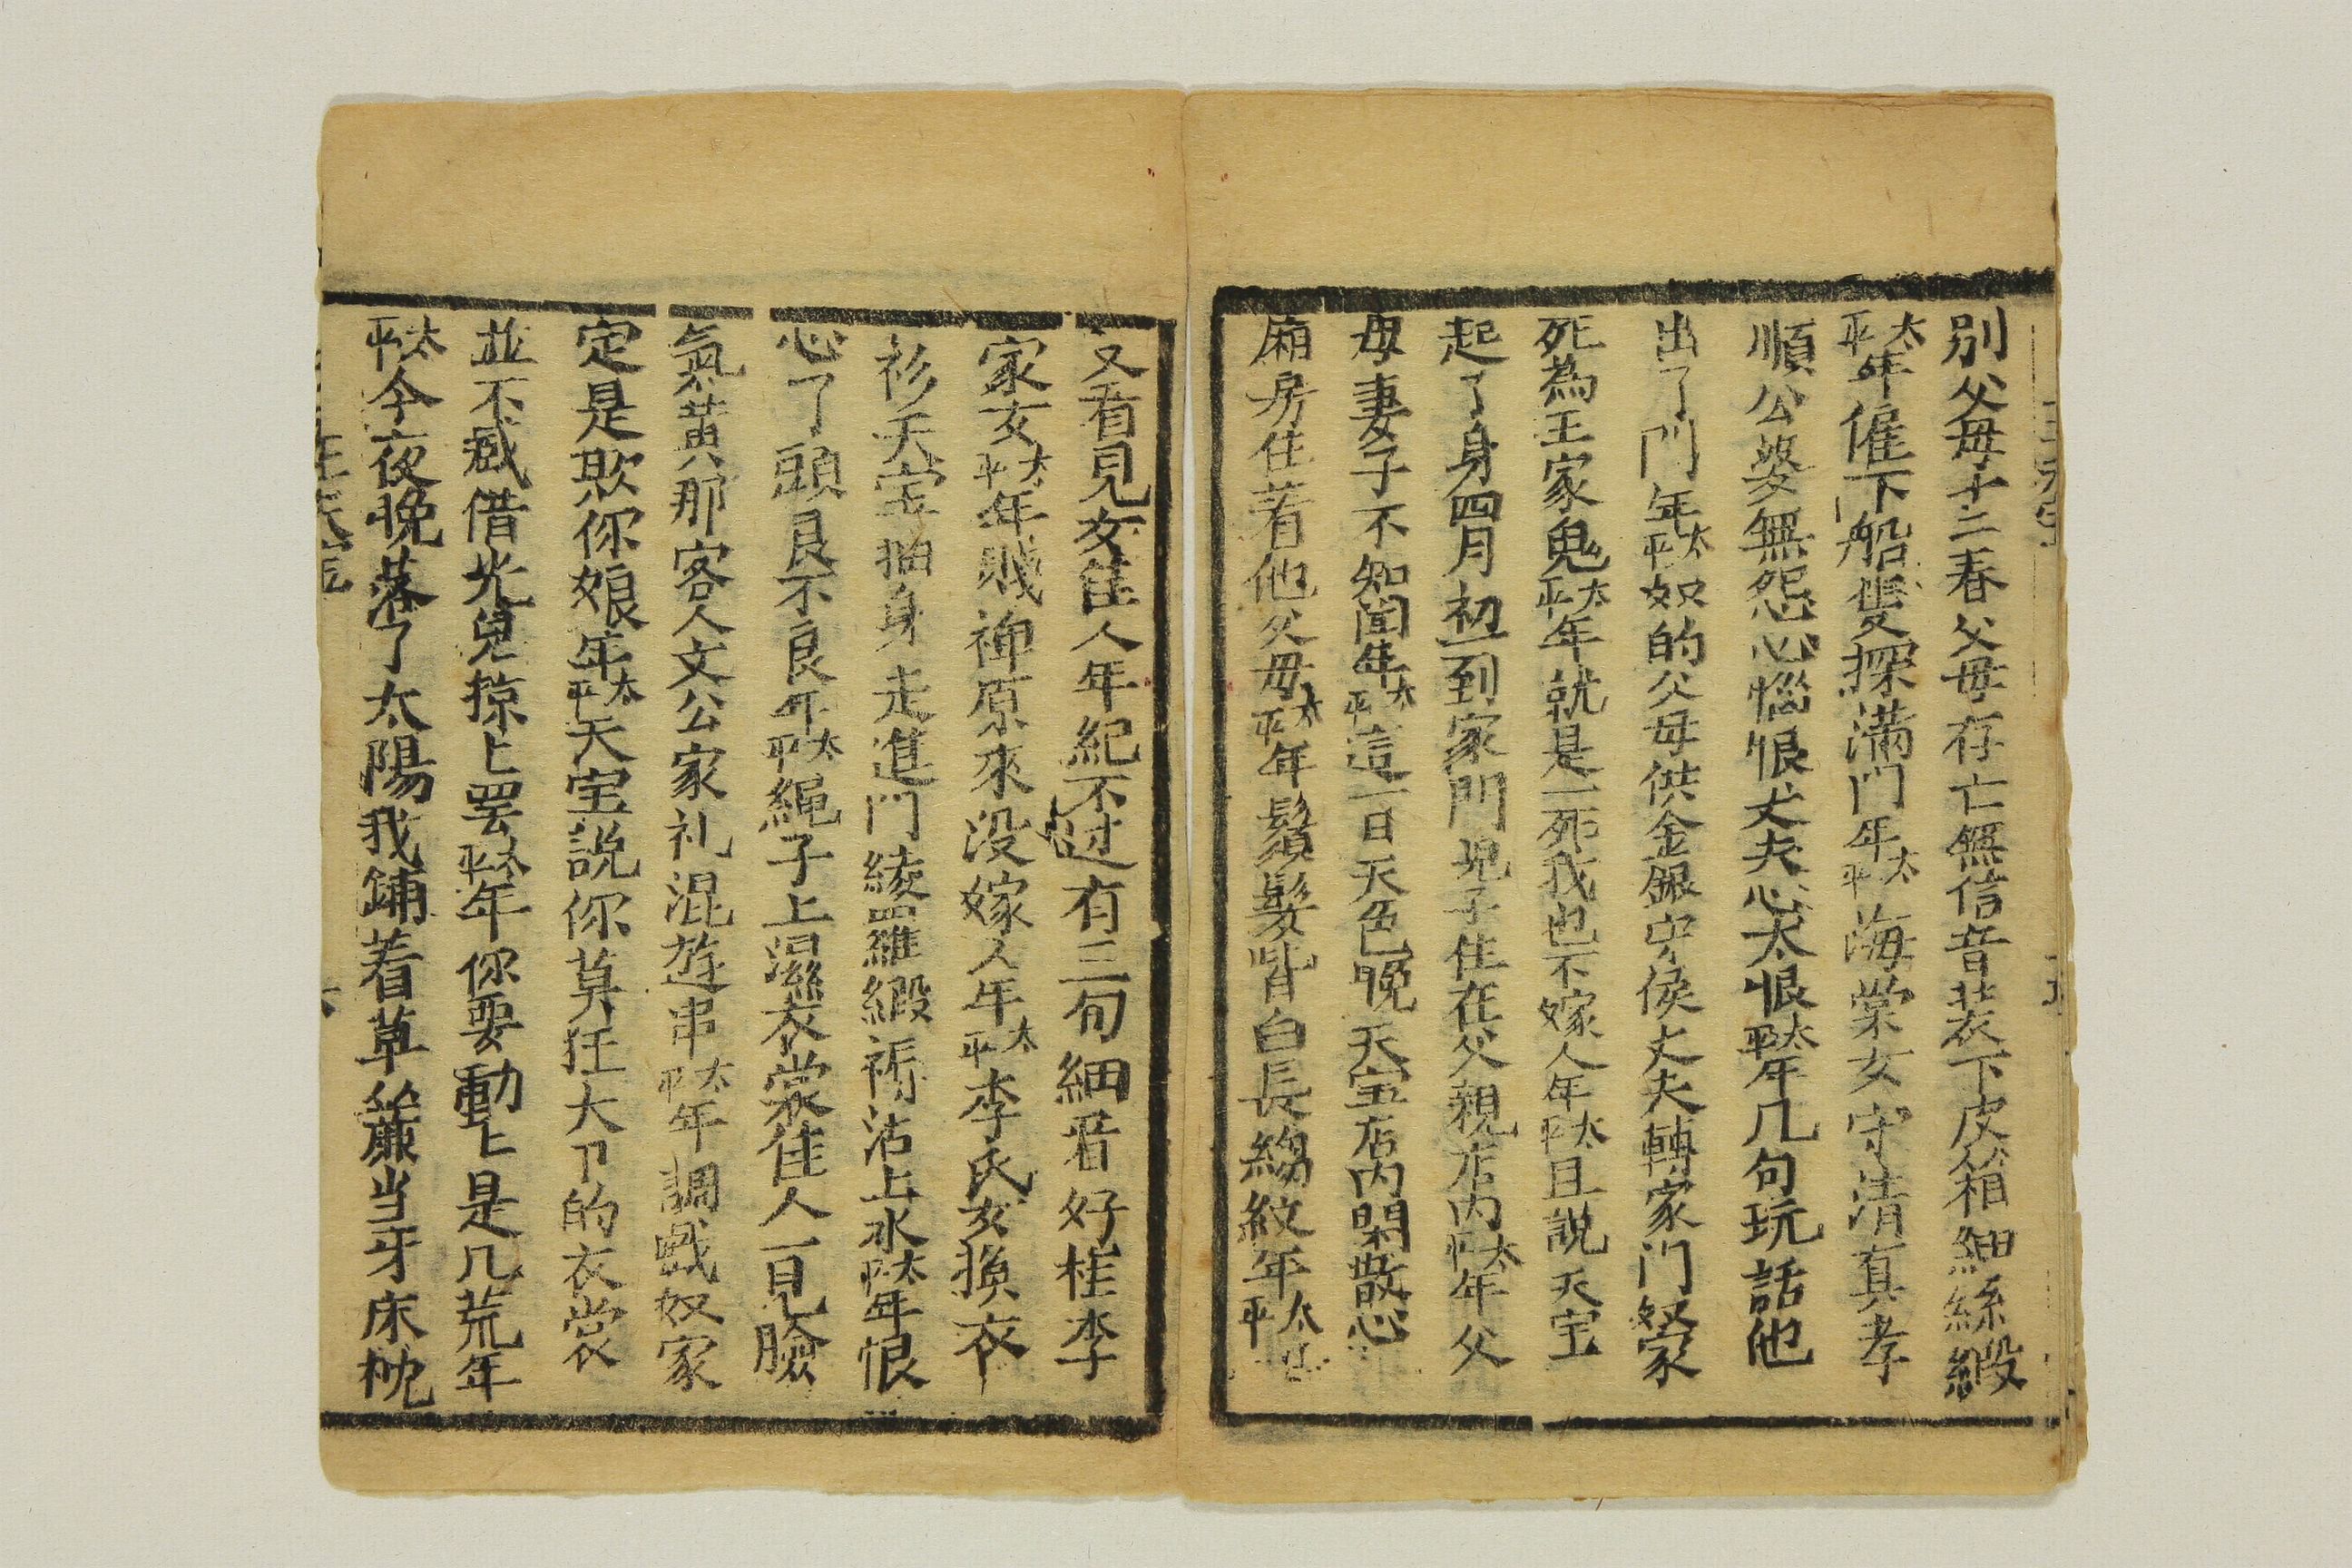 別父母十二春父母存亡無信音装下皮箱細絲緞
太平年僱下船隻探滿門年太平海棠女守清真孝
順公婆無怨心惱恨丈夫心太恨太平年几句玩話他
出了門年太平奴的父母供金銀守侯丈夫轉家门奴家
死為王家鬼太平年就是一死我也不嫁人年太平且説天宝
起了身四月初一到家門児子住在父親店内太平年父
母妻子不知聞年太平這一日天色晚天宝店内閑散心
廂房住着他父母太平年鬚髮皆白長縐紋年太平
又看見女佳人年紀不过有三旬細看好桂李
家女太平年賤婢原來没嫁人年太平李氏女換衣
衫天宝抽身走進门綾羅緞褥沾上水太平年恨
心了頭良不良年太平繩子上濕衣裳佳人一見臉
氣黄那客人文公家礼混遊串太平年調戲奴家
定是欺你娘年太平天宝説你莫狂大卩的衣裳
並不感借光兒掠上罢太平年你要動上是几荒年
太平今夜晚落了太陽我鋪着草簾当牙床枕
王天宝